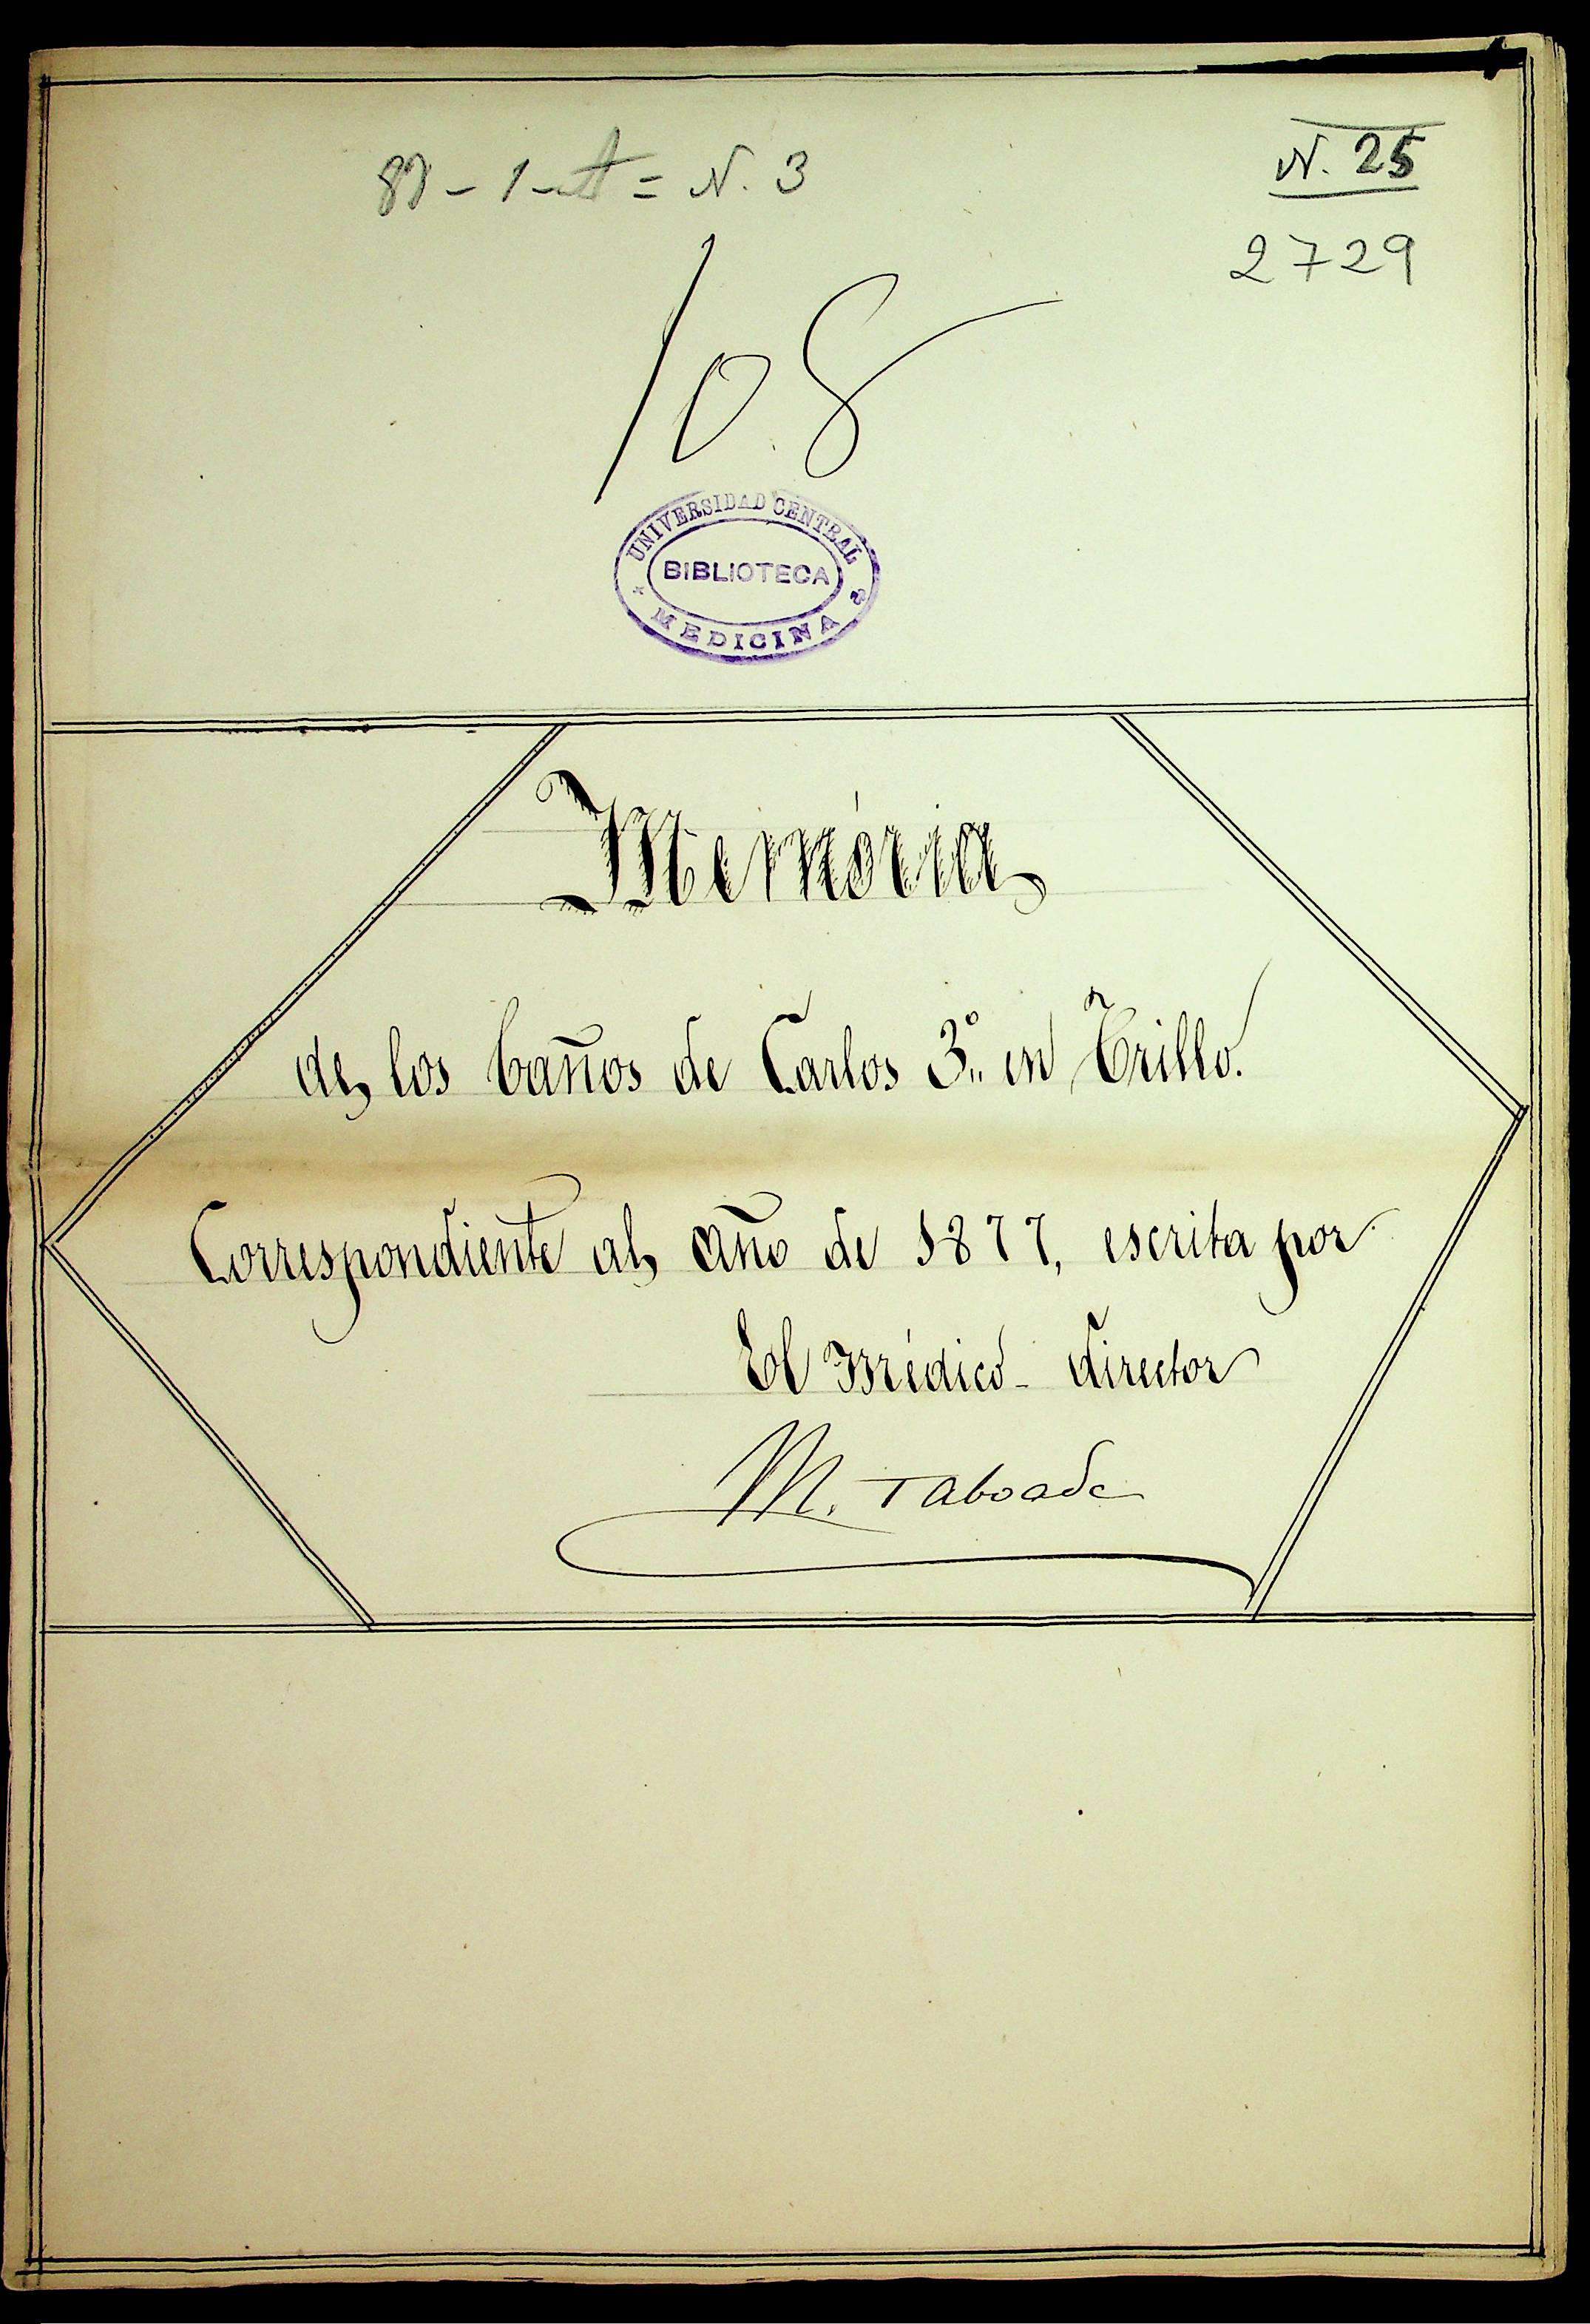 N. 25
87-1-A = N. 3
2729
108
UNIVERSIDAD CENTRAL
BIBLIOTECA
MEDICINA
Memória
de los baños de Carlos 3.º en Trillo.
Correspondiente al año de 1877, escrita por
El Médico-director
M. Taboada